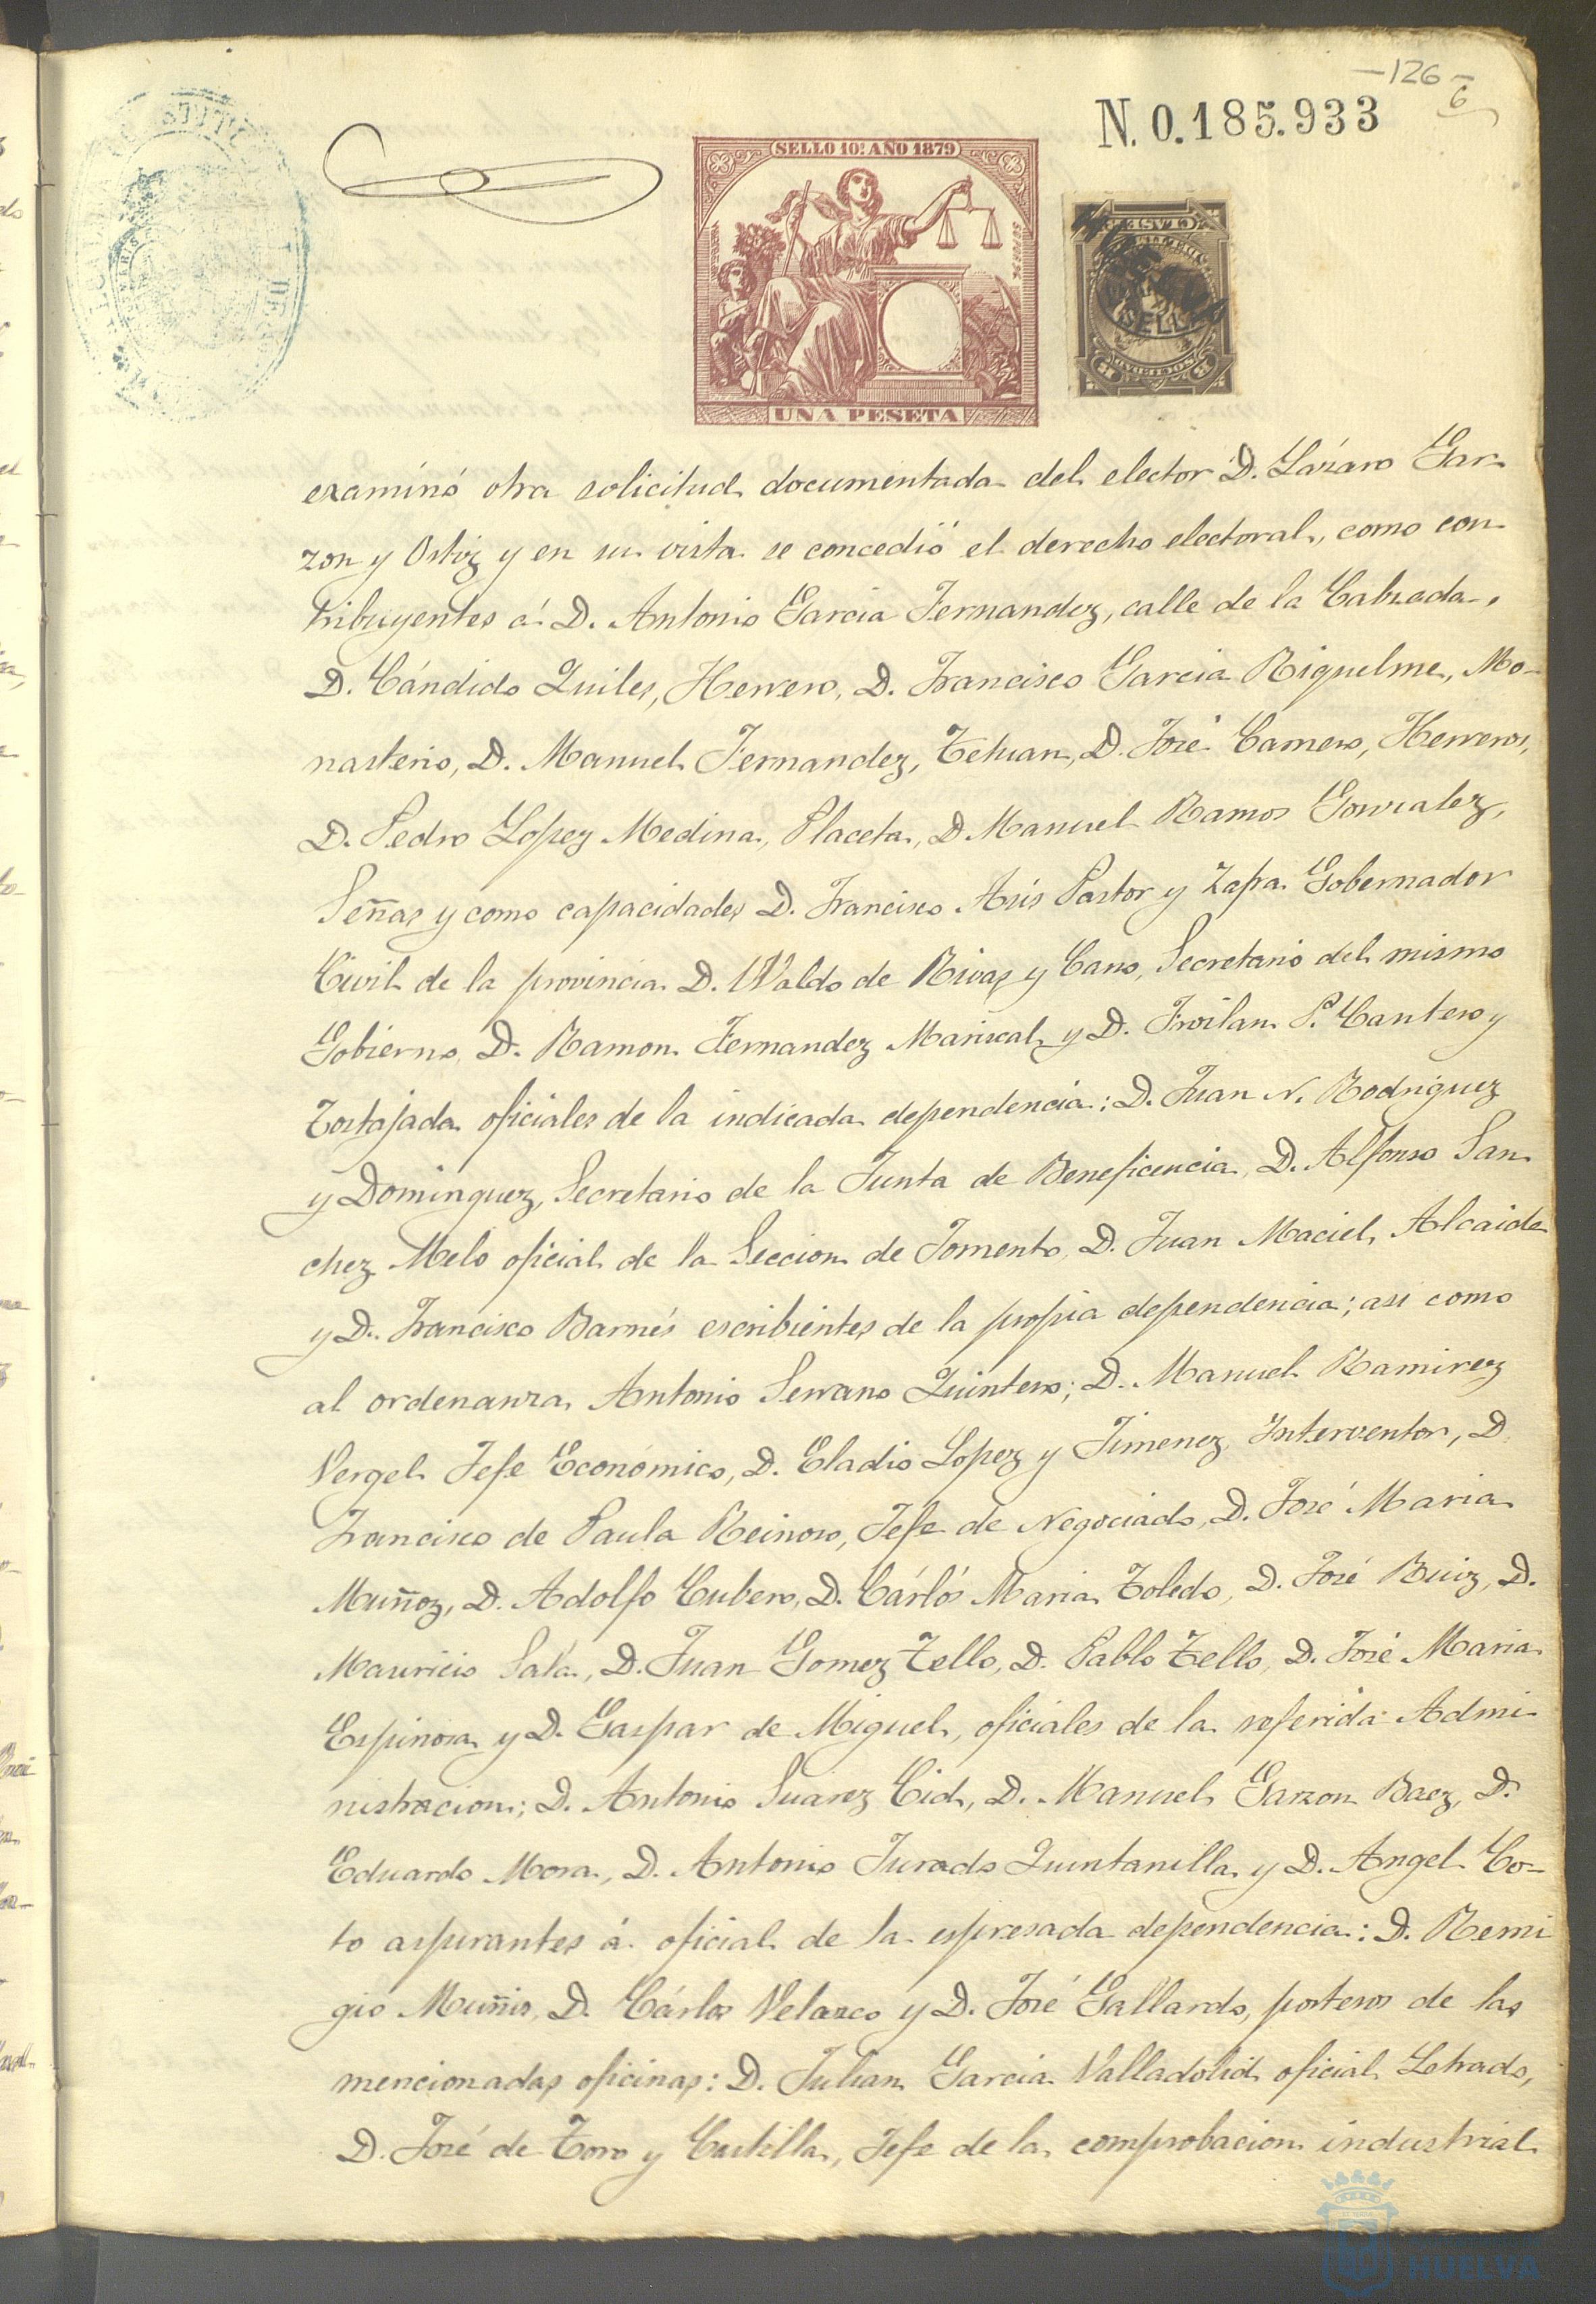 —126—
6
N. 0.185.933
SELLO 10.º AÑO 1879
UNA PESETA
examinó otra solicitud documentada del elector D. Lázaro Gar-
zon y Ortiz y en su vista se concedió el derecho electoral, como con
tribuyentes á D. Antonio Garcia Fernandez, calle de la Calzada,
D. Cándido Quiles, Herrero, D. Francisco Garcia Riquelme, Mo-
nasterio, D. Manuel Fernandez, Tetuan, D. José Carnero, Herreros,
D. Pedro Lopez Medina, Placeta, D Manuel Ramos Gonzalez,
Señas y como capacidades D. Francisco Asis Pastor y Zapa Gobernador
Civil de la provincia D. Waldo de Rivas y Cano, Secretario del mismo
Gobierno, D. Ramon Fernandez Mariscal y D. Froilan P. Cantero y
Tortajada oficiales de la indicada dependencia: D. Juan N. Rodriguez
y Dominguez, Secretario de la Junta de Beneficencia, D. Alfonso San
chez Melo oficial de la Seccion de Fomento, D. Juan Maciel, Alcaide
y D. Francisco Barnés escribientes de la propia dependencia; asi como
al ordenanza Antonio Serrano Quintero; D. Manuel Ramirez
Vergel Jefe Económico, D. Eladio Lopez y Jimenez Interventor, D.
Francisco de Paula Reinoso, Jefe de Negociado, D. José Maria
Muñoz, D. Adolfo Cubero, D. Cárlos Maria Toledo, D. José Ruiz, D.
Mauricio Sala, D. Juan Gomez Tello, D. Pablo Tello, D. José Maria
Espinosa y D. Gaspar de Miguel, oficiales de la referida Admi-
nistracion; D. Antonio Suarez Cid, D. Manuel Garzon Baez, D.
Eduardo Mora, D. Antonio Jurado Quintanilla y D. Angel Co-
to aspirantes á oficial de la espresada dependencia: D. Remi
gio Muñiz, D. Cárlos Velazco y D. José Gallardo, porteros de las
mencionadas oficinas: D. Julian Garcia Valladolid oficial Letrado,
D. José de Toro y Castilla, Jefe de la comprobacion industrial
HUELVA